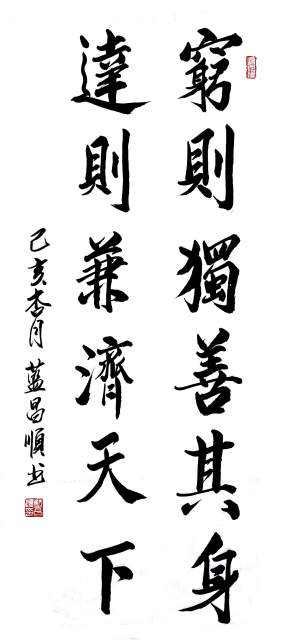 窮則獨善其身
達則兼濟天下
己亥杏月藍昌順书